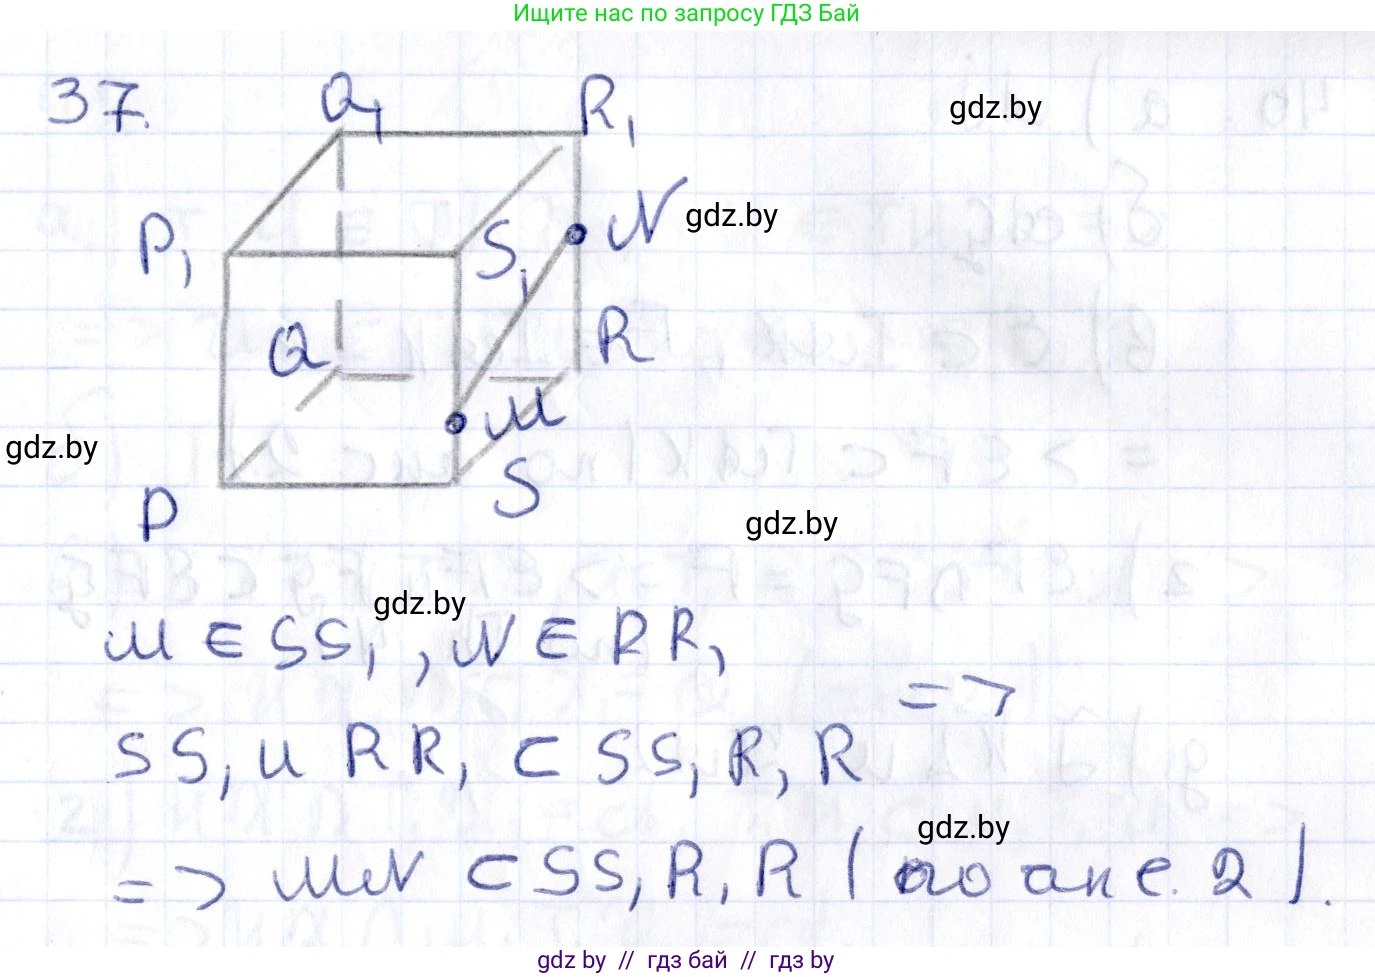 Ищите нас по запросу ГДЗ Бай
37.
Q₁
R₁
gdz.by
N
gdz.by
P₁
S₁
Q
R
M
gdz.by
S
P
gdz.by
gdz.by
M ∈ SS₁, N ∈ RR₁
=>
SS₁ и RR₁ ⊂ SS₁R₁R
gdz.by
=> MN ⊂ SS₁R₁R (по акс. 2).
gdz by // гдз бай // гдз by